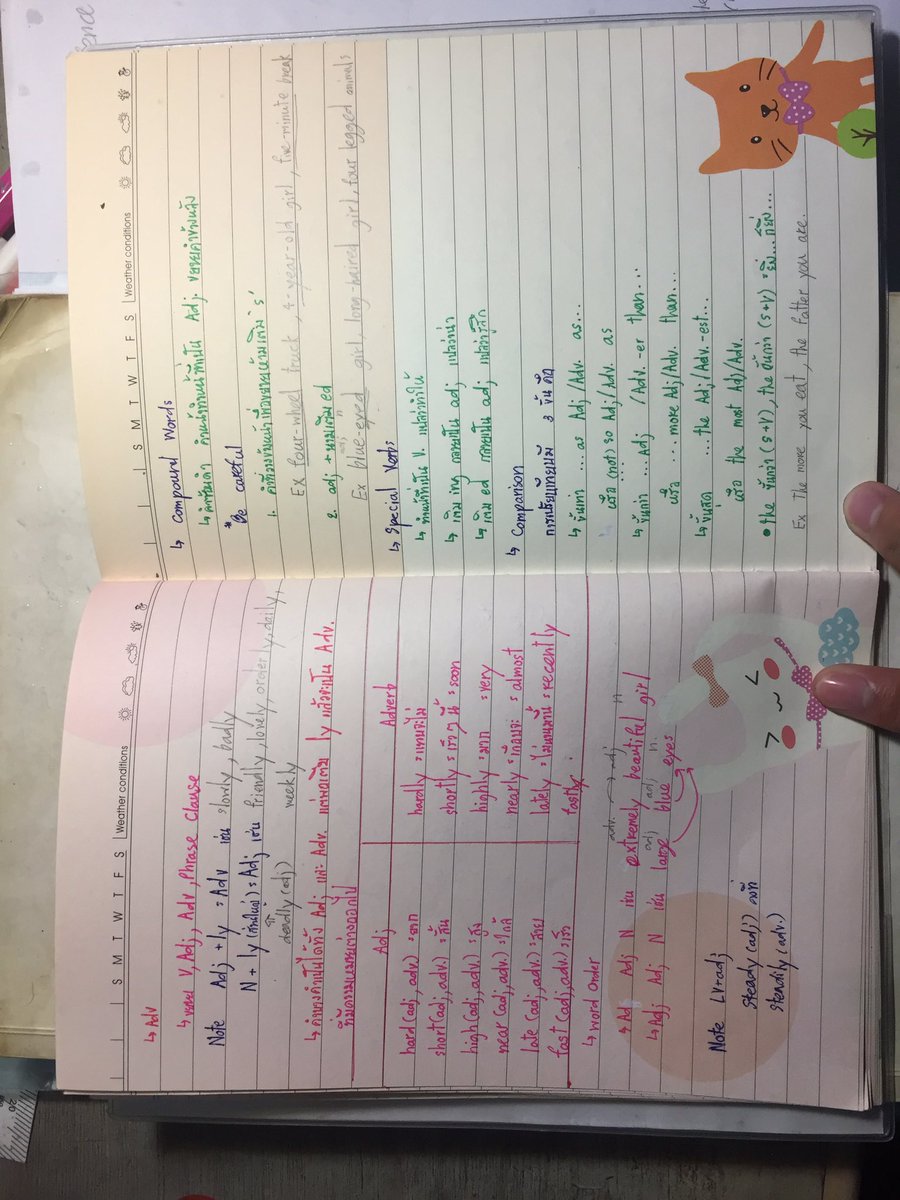 S M T W T F S Weather conditions
↳ Adv
↳ ขยาย V, Adj, Adv, Phrase Clause
Note Adj + ly = Adv เช่น slowly, badly
N + ly = Adj เช่น friendly, lovely, orderly, daily,
deadly (adj) weekly
↳ คำบางคำเป็นได้ทั้ง Adj และ Adv. แต่พอเติม ly แล้วจะเป็น Adv.
ที่มีความหมายต่างออกไป
Adj Adverb
hard (adj, adv.) = ยาก hardly = แทบจะไม่
short (adj, adv.) = สั้น shortly = เร็วๆ นี้ = soon
high (adj, adv.) = สูง highly = มาก = very
near (adj, adv.) = ใกล้ nearly = เกือบจะ = almost
late (adj, adv.) = สาย lately = ไม่นานมานี้ = recently
fast (adj, adv.) = เร็ว fastly
↳ Word Order
adv. adj n
↳ Ad Adj N เช่น extremely beautiful girl
adj adj n.
↳ Adj Adj N เช่น large blue eyes
Note LV + adj
Steady (adj) คงที่
steadily (adv.)
S M T W T F S Weather conditions
↳ Compound Words
↳ คำซ้อนคำ ทำหน้าที่เป็น Adj ขยายคำข้างหลัง
*Be careful
1. คำที่วางข้างหน้าเพื่อขยายห้ามเติม 's'
Ex four-wheel truck, 4-year-old girl, five-minute break
2. adj + นามเติม ed
adj n
Ex blue-eyed girl, long-haired girl, four legged animals
↳ Special Verbs
↳ ทำหน้าที่เป็น V. แปลว่าทำให้
↳ เติม ing กลายเป็น adj แปลว่าน่า
↳ เติม ed กลายเป็น adj แปลว่ารู้สึก
↳ Comparison
การเปรียบเทียบมี 3 ขั้นคือ
↳ ขั้นเท่า ... as Adj/Adv. as...
หรือ (not) so Adj/Adv. as
↳ ขั้นกว่า ... Adj /Adv. -er than...
หรือ ... more Adj/Adv. than...
↳ ขั้นสุด ... the Adj/Adv. -est...
หรือ the most Adj/Adv.
• The ขั้นกว่า (s+v), the ขั้นกว่า (s+v) = ยิ่ง... ก็ยิ่ง...
Ex The more you eat, the fatter you are.